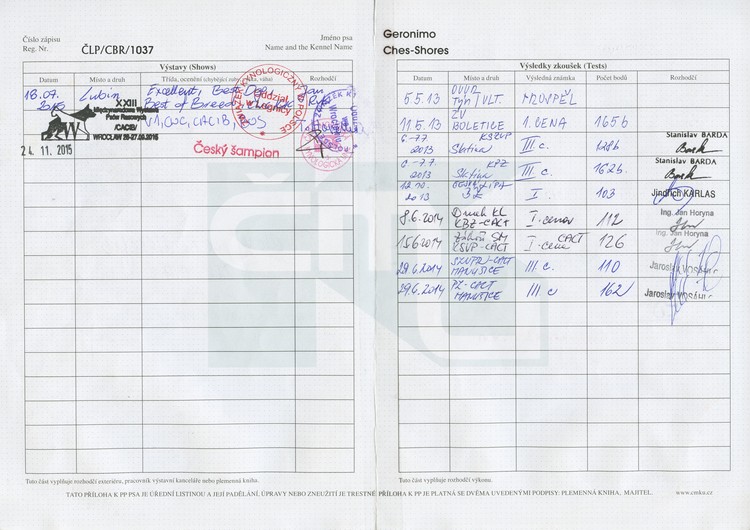 Číslo zápisu
Reg. Nr.
ČLP/CBR/1037
Jméno psa
Name and the Kennel Name
Výstavy (Shows)
Datum
Místo a druh
Třída, ocenění (chybějící zuby, výška, váha)
Rozhodčí
18.07.
2015
Lubin
Excellent, Best Dog
Best of Breed
Jan
XXIII
Międzynarodowa Wystawa
Psów Rasowych
/CACIB/
WROCŁAW 26-27.09.2015
V1, CWC, CACIB,
ZWIĄZEK KYNOLOGICZNY W POLSCE
Oddział
w Legnicy
24. 11. 2015
Český šampion
Tuto část vyplňuje rozhodčí exteriéru, pracovník výstavní kanceláře nebo plemenná kniha.
Geronimo
Ches-Shores
Výsledky zkoušek (Tests)
Datum
Místo a druh
Výsledná známka
Počet bodů
Rozhodčí
5.5.13
Týn / VLT.
11.5.13
ZV
BOLETICE
1. CENA
165 b
6-7.7.
2013
Slatina
III. c.
128b
Stanislav BARDA
6-7.7.
2013
KPZ
Slatina
III. c.
162b.
Stanislav BARDA
12.10.
2013
I.
103
Jindřich KARLAS
8.6.2014
Druh KL
KBZ-CACT
I. cenou
112
Ing. Jan Horyna
15.6.2014
KSVP-CACT
I. cena
CACT
126
Ing. Jan Horyna
29.6.2014
MANUŠICE
III. c.
110
Jaroslav VOSÁHLO
29.6.2014
PZ-CACT
MANUŠICE
III. c
162
Jaroslav VOSÁHLO
Tuto část vyplňuje rozhodčí výkonu.
TATO PŘÍLOHA K PP PSA JE ÚŘEDNÍ LISTINOU A JEJÍ PADĚLÁNÍ, ÚPRAVY NEBO ZNEUŽITÍ JE TRESTNÉ. PŘÍLOHA K PP JE PLATNÁ SE DVĚMA UVEDENÝMI PODPISY: PLEMENNÁ KNIHA, MAJITEL.
www.cmku.cz